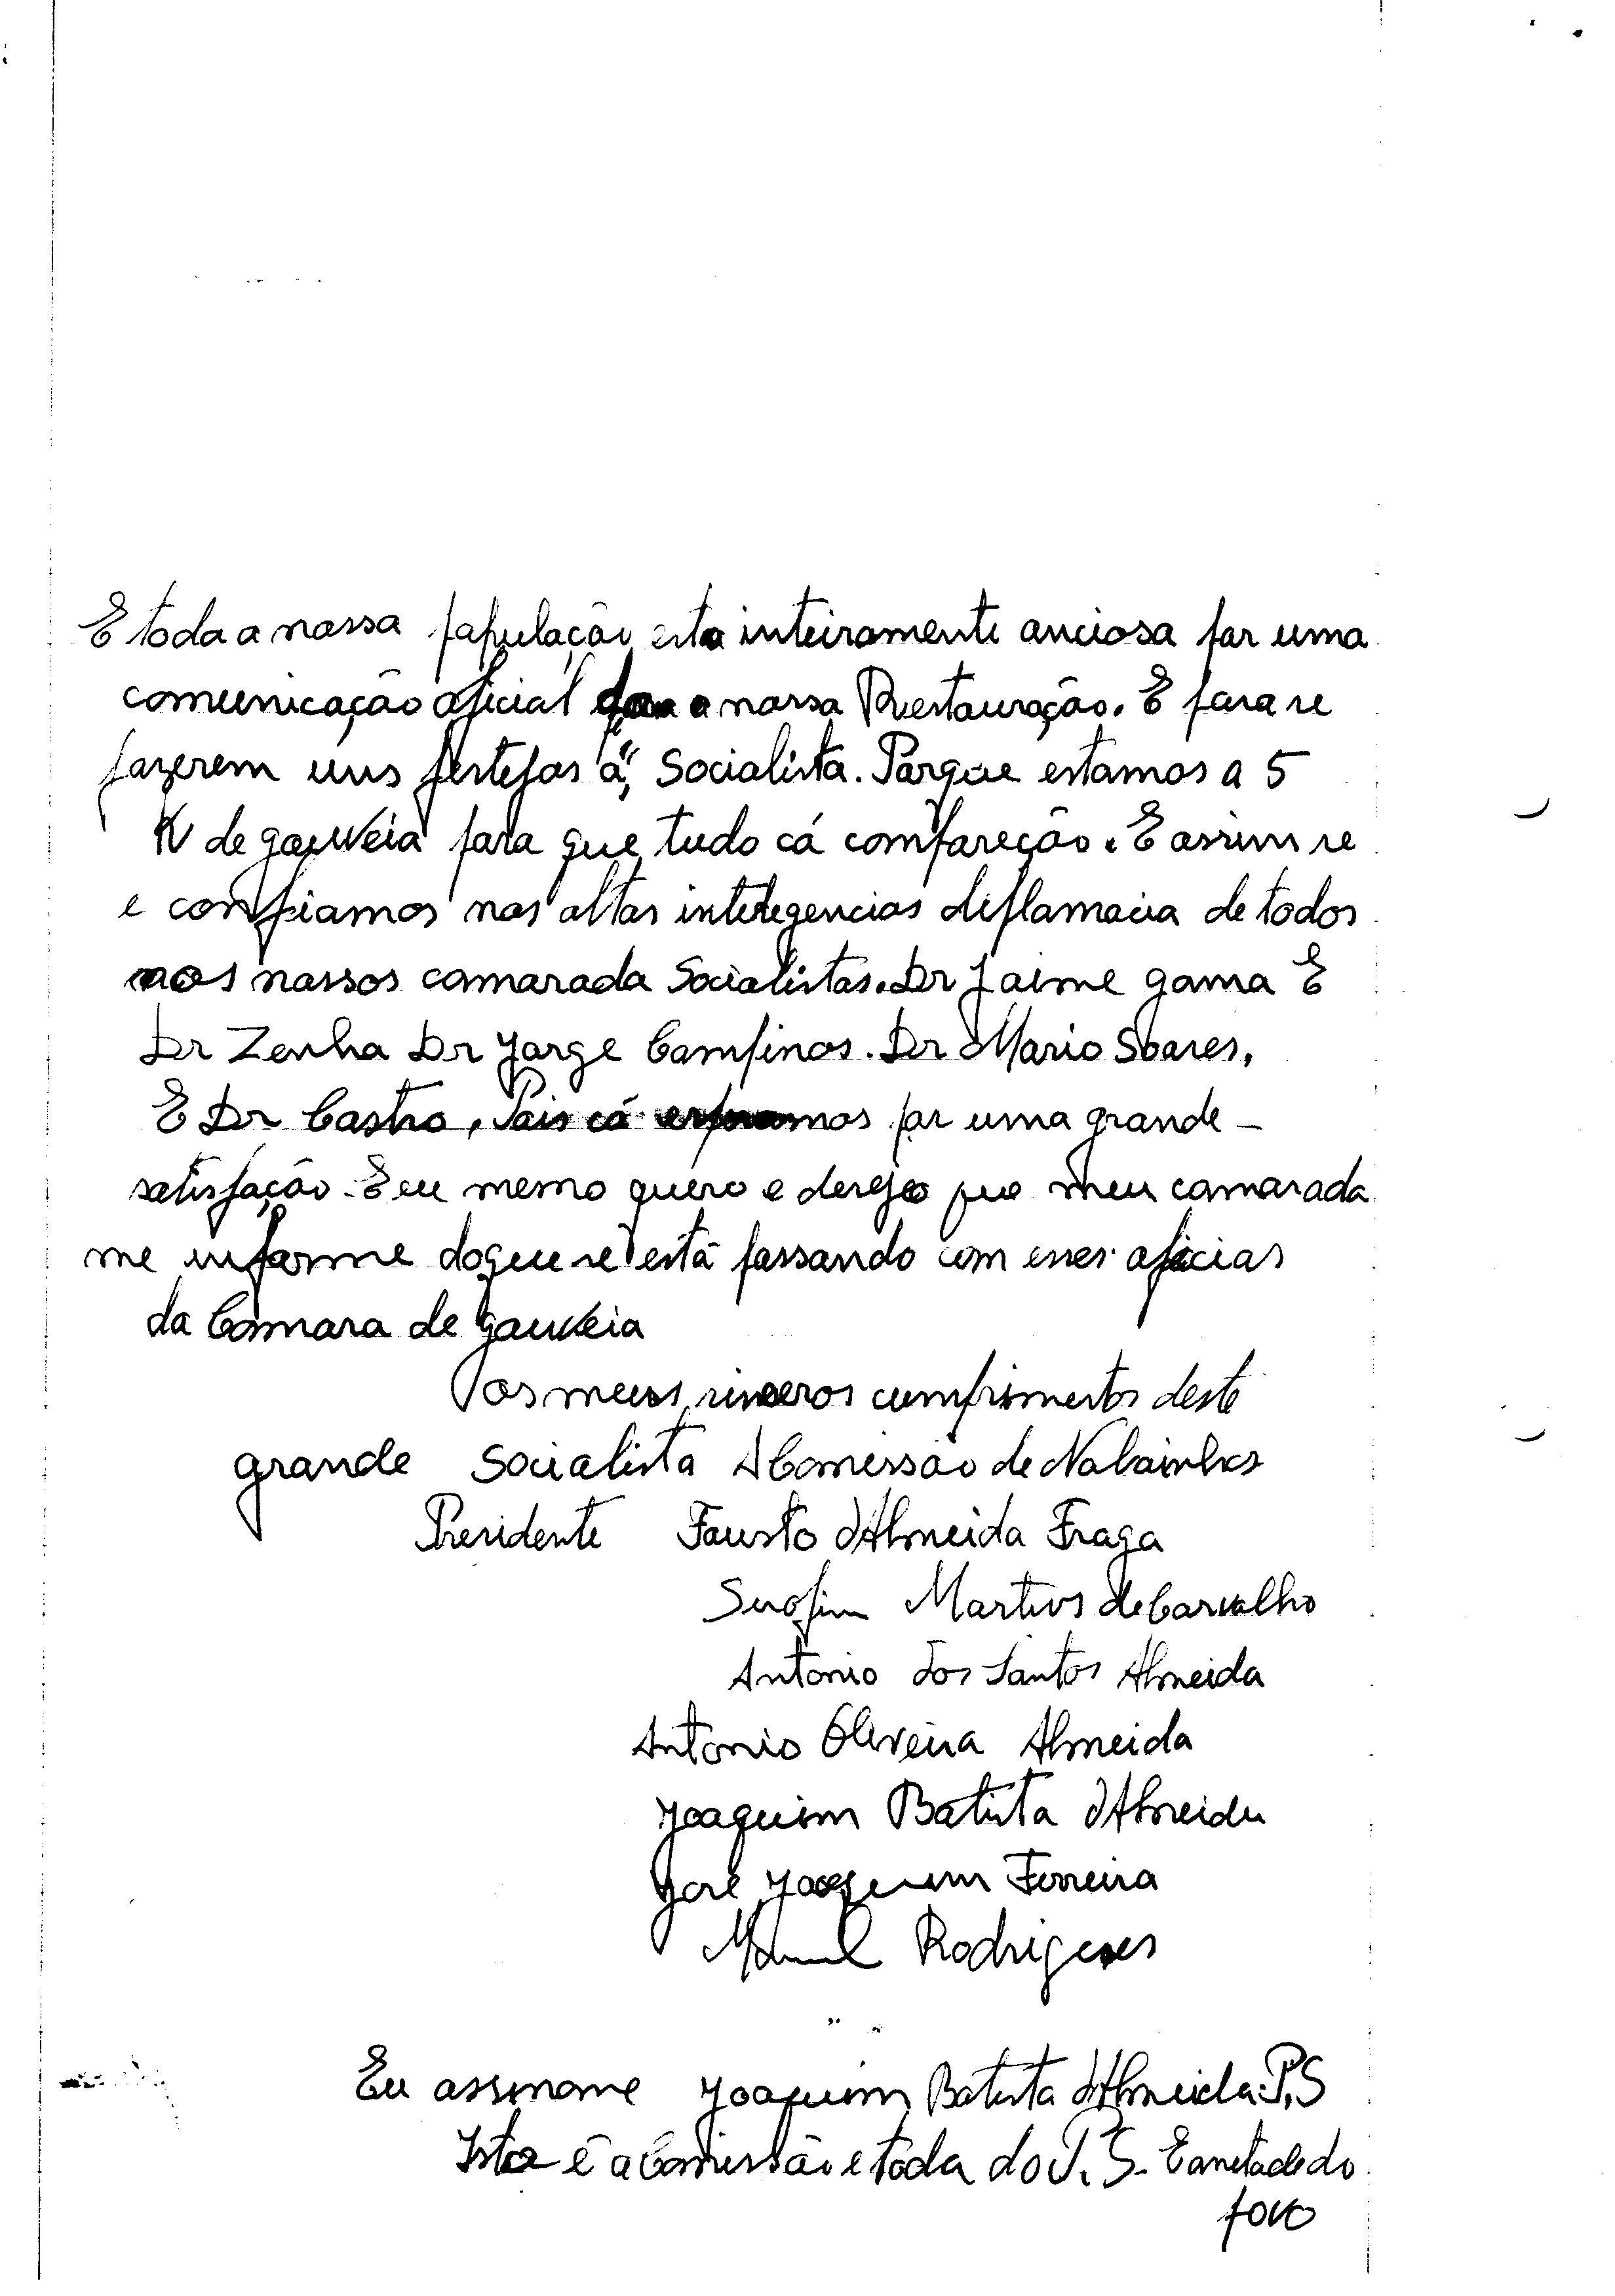 E toda a nossa população esta inteiramente anciosa por uma
comunicação oficial a nossa Restauração. E para se
fazerem uns festejos á, Socialista. Porque estamos a 5
K de gouveia para que tudo cá compareção. E assim se
e confiamos nas altas intelegencias diplamacia de todos
nos nassos camarada Socialistas. Dr Jaime gama E
Dr Zenha Dr Jorge Campinos. Dr Mario Soares,
E Dr Castro, Pois cá esperamos por uma grande -
satisfação. E eu memo quero e desejo que meu camarada
me informe do que se está passando com esses oficias
da Camara de gouveia
os meus sinseros cumprimentos deste
grande Socialista A Comessão de Nabainhos
Presidente Fausto d'Almeida Fraga
Serafim Martins de Carvalho
Antonio dos Santos Almeida
Antonio Oliveira Almeida
Joaquim Batista d'Almeida
José Joaquim Ferreira
Manuel Rodrigues
Eu assinome Joaquim Batista d'Almeida P.S
Ista é a Comissão e toda do P.S. E ametade do
povo